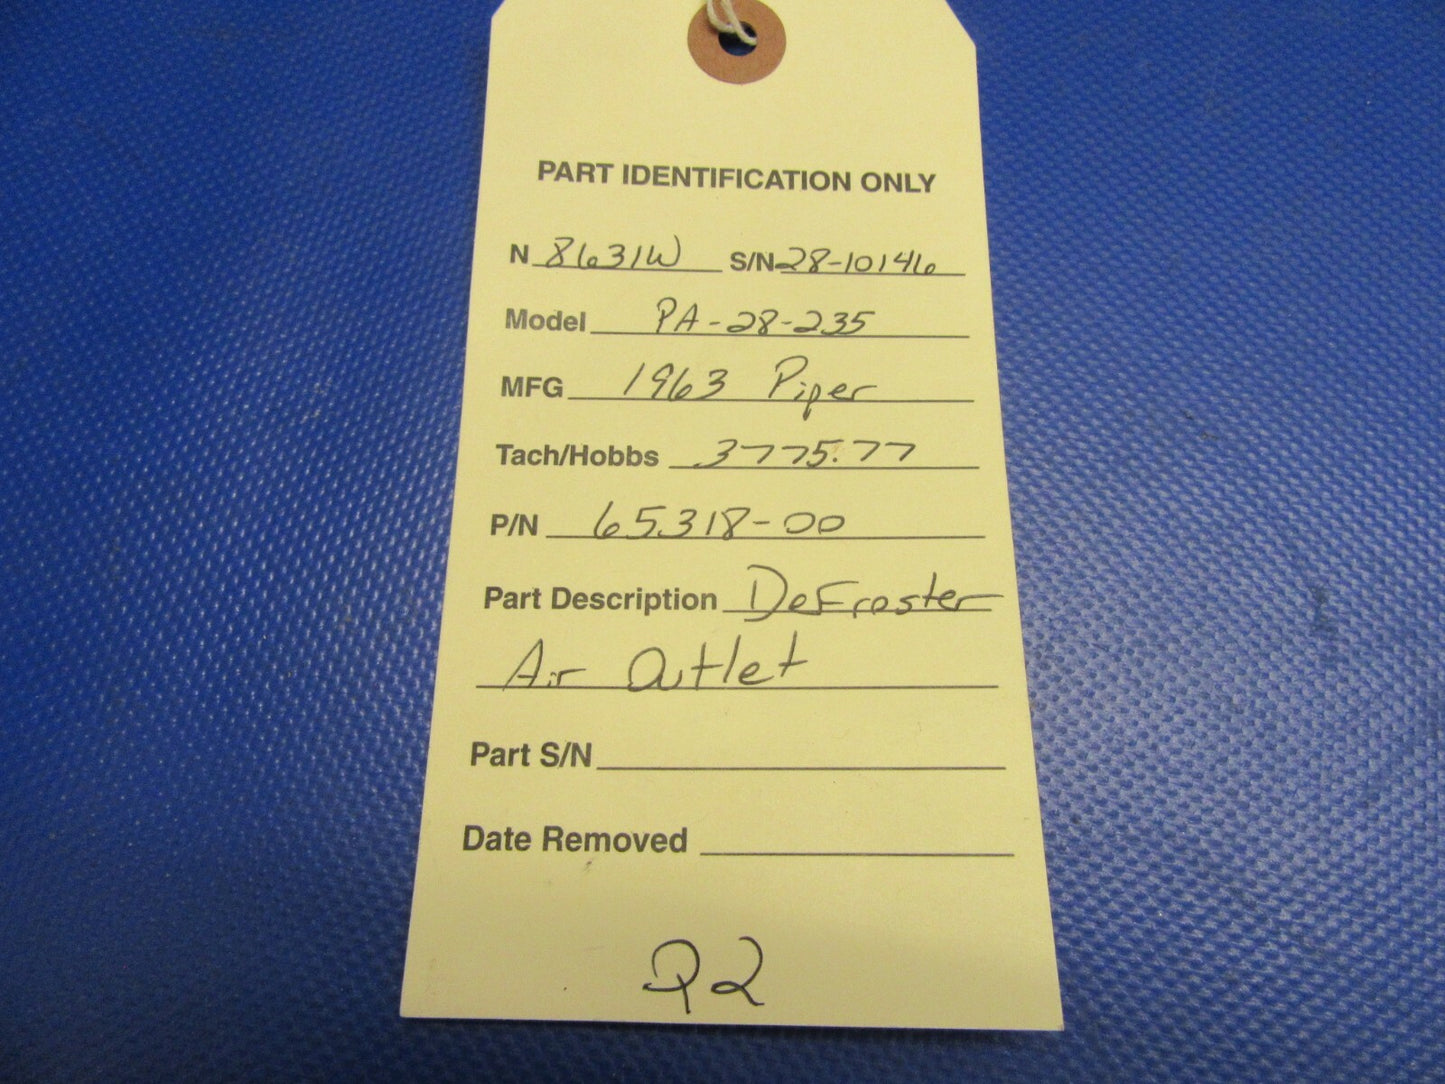 PART IDENTIFICATION ONLY
N 8631W S/N 28-10146
Model PA-28-235
MFG 1963 Piper
Tach/Hobbs 3775.77
P/N 65318-00
Part Description DeFroster
Air Outlet
Part S/N
Date Removed
Q2